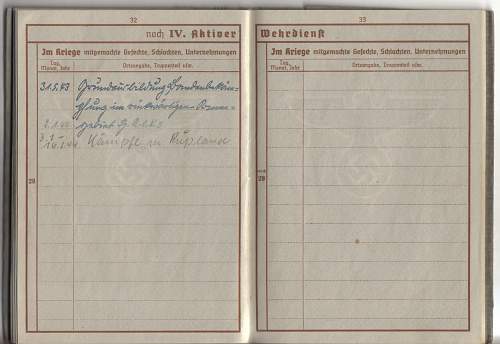 32
noch IV. Aktiver
Im Kriege mitgemachte Gefechte, Schlachten, Unternehmungen
Tag, Monat, Jahr
Ortsangabe, Truppenteil usw.
31.5.43 Grundausbildung Bandenbekäm-
pfung im rückwärtigen
gebiet
Kämpfe in Rußland
29
33
Wehrdienst
Im Kriege mitgemachte Gefechte, Schlachten, Unternehmungen
Tag, Monat, Jahr
Ortsangabe, Truppenteil usw.
29